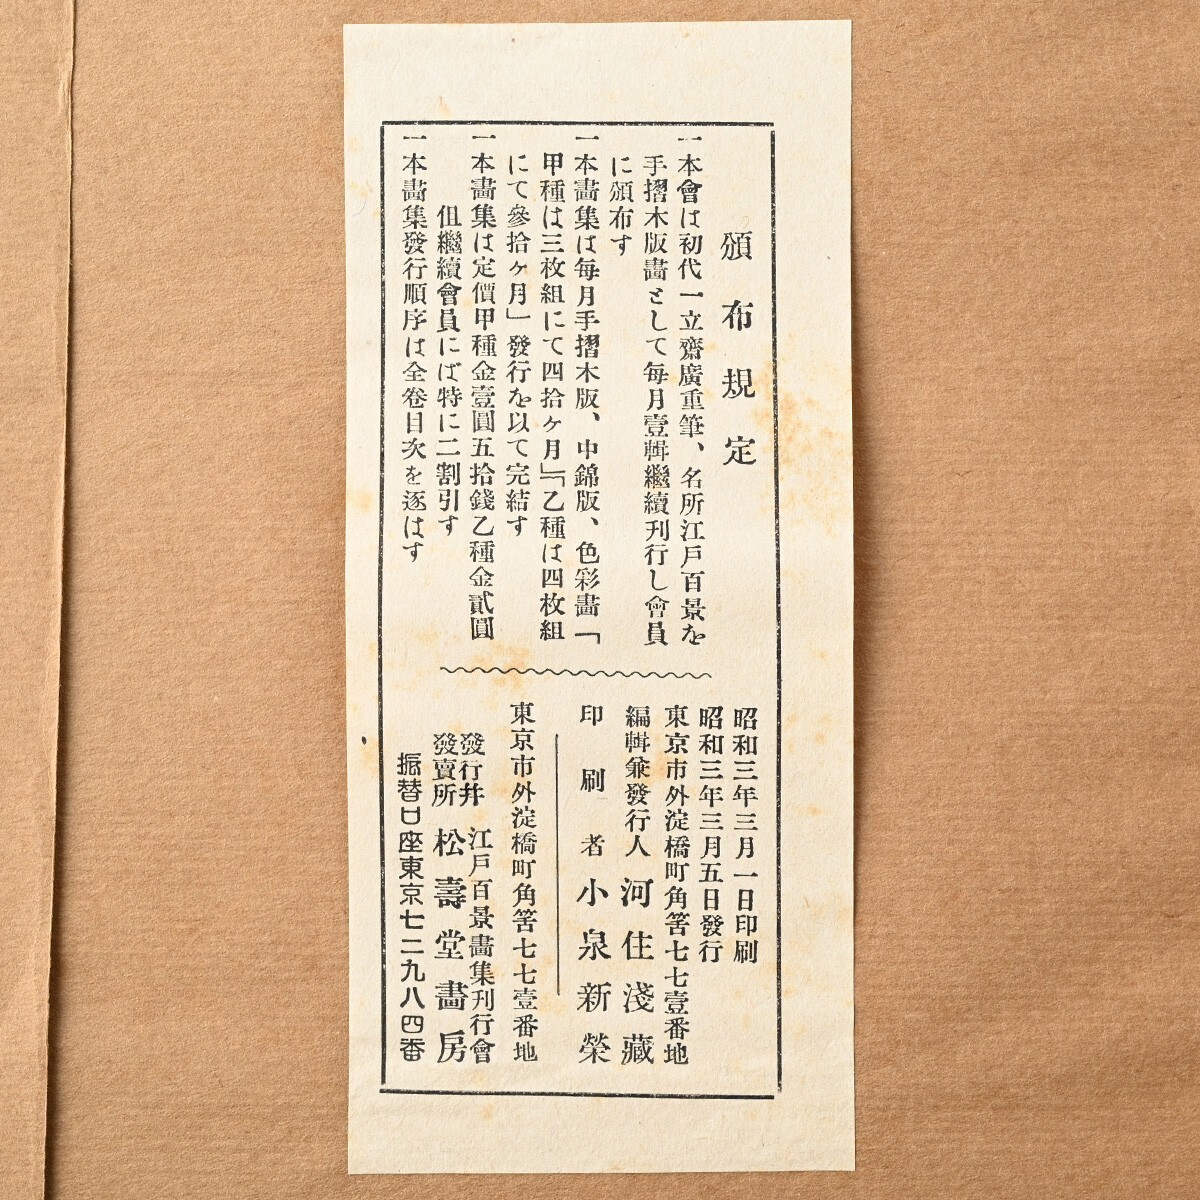 頒布規定
一本會は初代一立齋廣重筆、名所江戸百景を
手摺木版畵として毎月壹輯繼續刊行し會員
に頒布す
一本畵集は毎月手摺木版、中錦版、色彩畵「
甲種は三枚組にて四拾ヶ月」「乙種は四枚組
にて參拾ヶ月」發行を以て完結す
一本畵集は定價甲種金壹圓五拾錢乙種金貳圓
但繼續會員にば特に二割引す
一本畵集發行順序は全卷目次を逐はす
昭和三年三月一日印刷
昭和三年三月五日發行
東京市外淀橋町角筈七七壹番地
編輯兼發行人 河住淺藏
印刷者 小泉新榮
東京市外淀橋町角筈七七壹番地
發行井 江戸百景畵集刊行會
發賣所 松壽堂畵房
振替口座東京七二九八四番